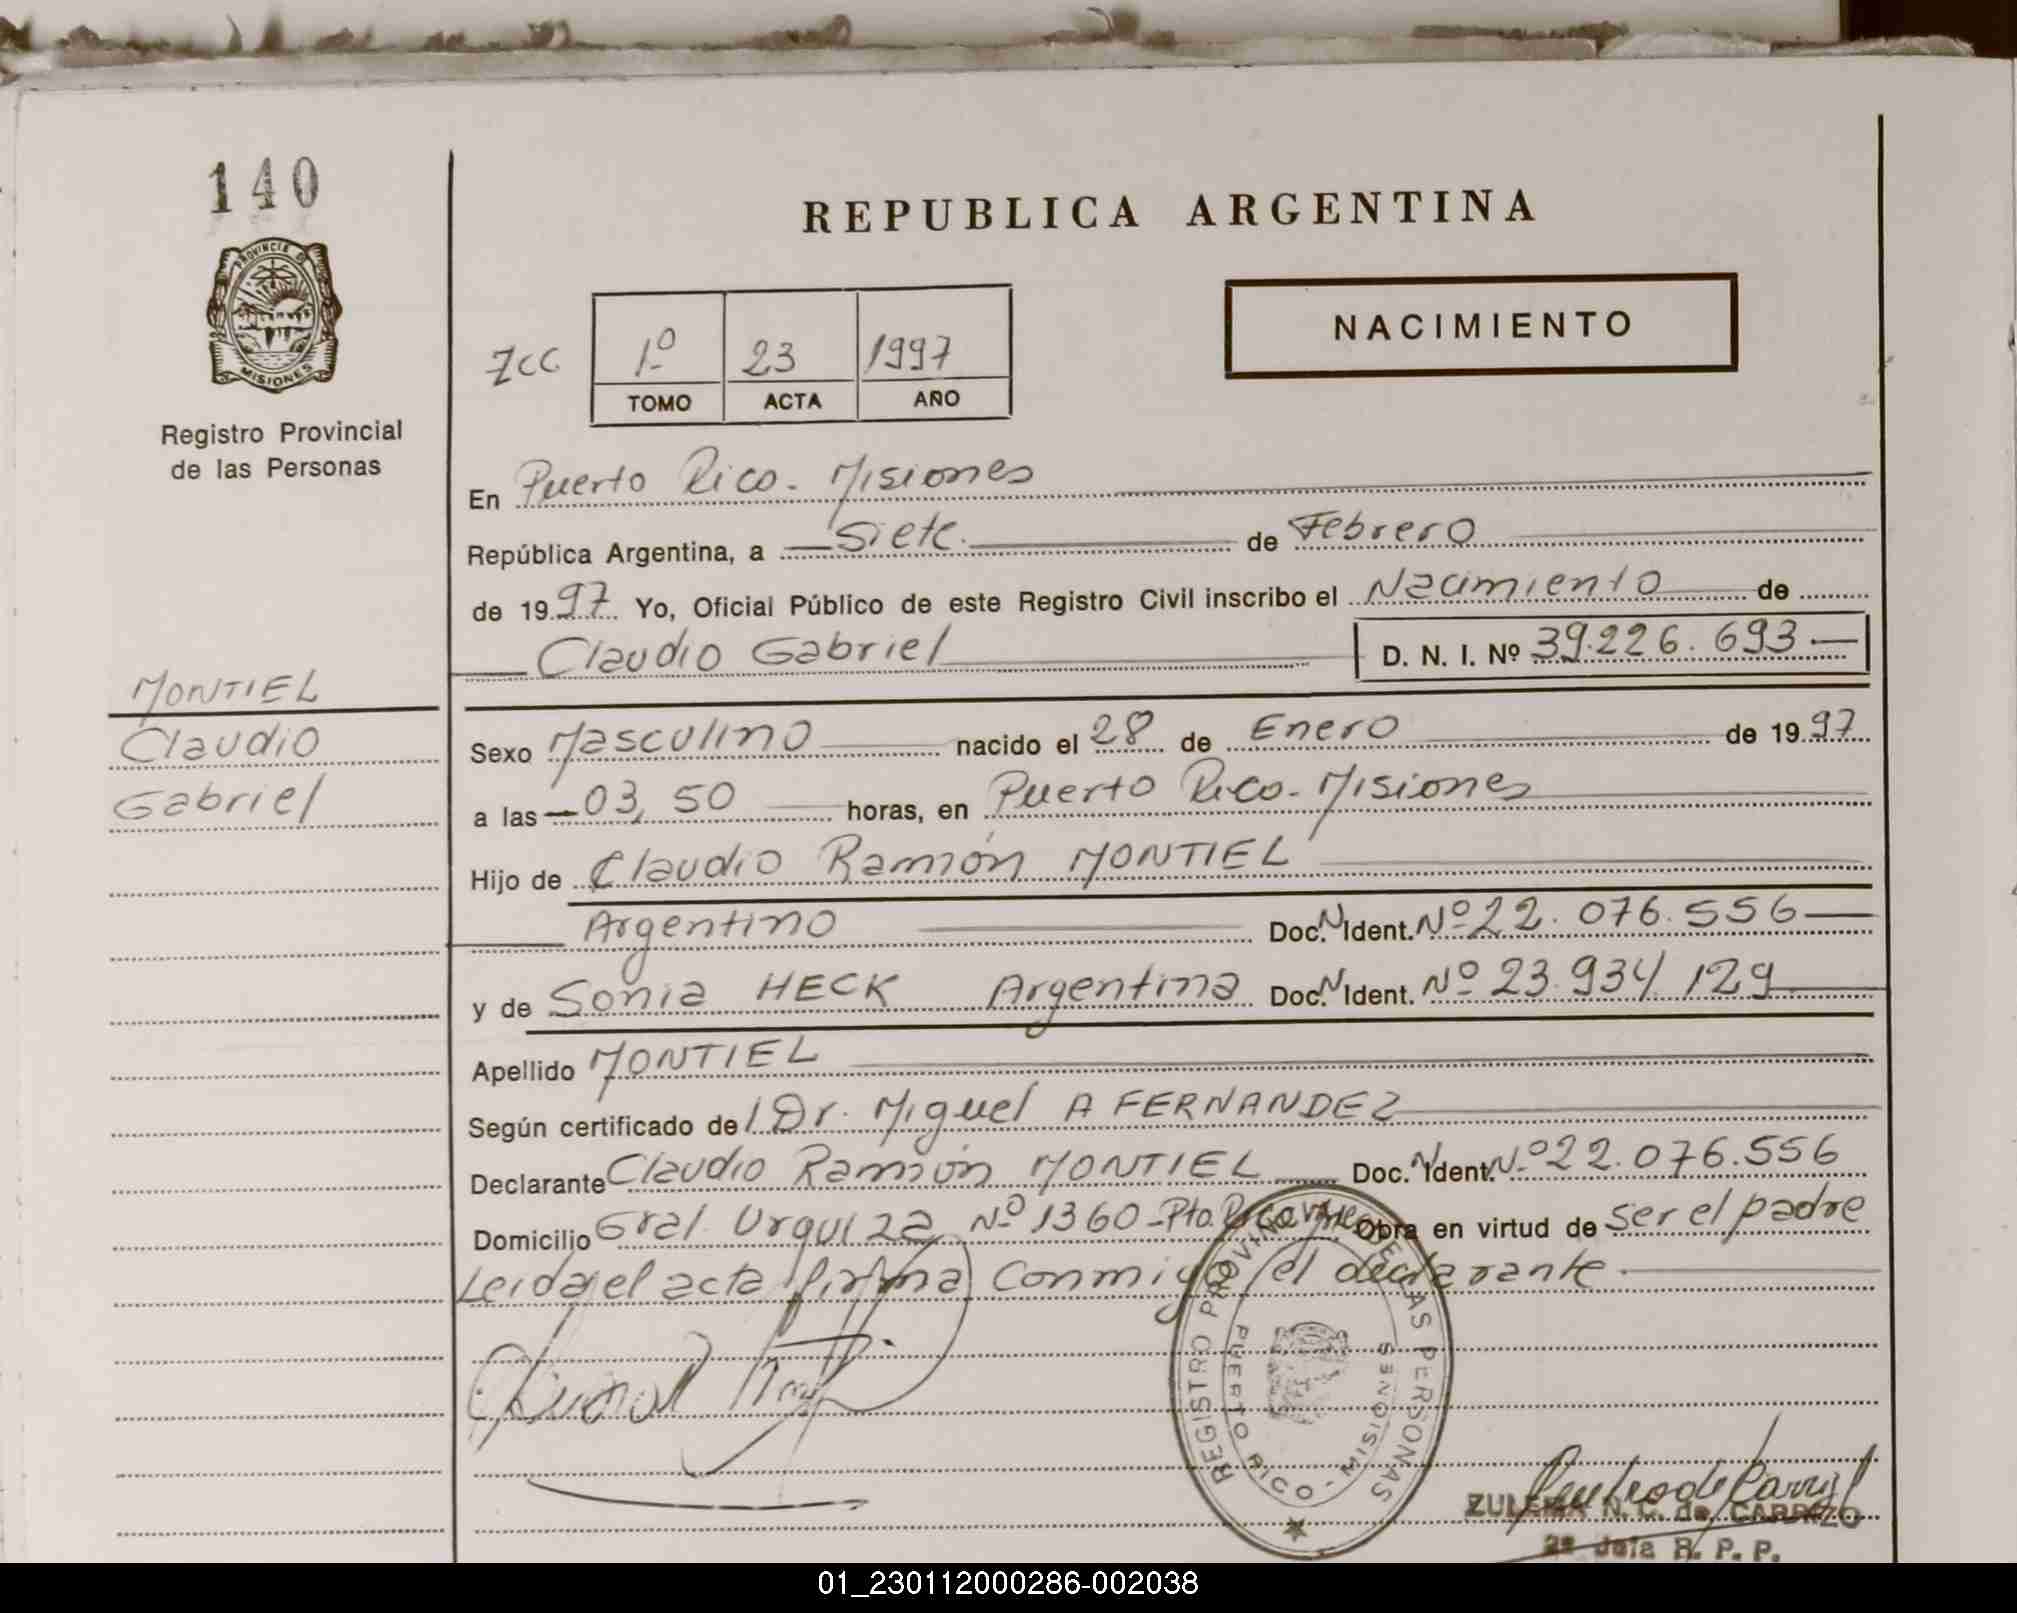 140
PROVINCIA D
MISIONES
Registro Provincial
de las Personas
MONTIEL
Claudio
Gabriel
REPUBLICA ARGENTINA
NACIMIENTO
ZCC
1º 23 1997
TOMO ACTA AÑO
En Puerto Rico - Misiones
República Argentina, a Siete de Febrero
de 1997 Yo, Oficial Público de este Registro Civil inscribo el Nacimiento de
Claudio Gabriel D. N. I. Nº 39.226.693
Sexo Masculino nacido el 28 de Enero de 1997
a las 03,50 horas, en Puerto Rico - Misiones
Hijo de Claudio Ramón MONTIEL
Argentino Doc. N. Ident. Nº 22.076.556
y de Sonia HECK Argentina Doc. N. Ident. Nº 23.934.129
Apellido MONTIEL
Según certificado del Dr. Miguel A FERNANDEZ
Declarante Claudio Ramón MONTIEL Doc. N. Ident. Nº 22.076.556
Domicilio Gral. Urquiza Nº 1360 - Pto. Rico Obra en virtud de ser el padre
Leida el acta firma conmigo el declarante
REGISTRO PROVINCIAL DE LAS PERSONAS
PUERTO RICO - MISIONES
ZULEMA N. C. de CARRIZO
2ª Jefa R. P. P.
01_230112000286-002038